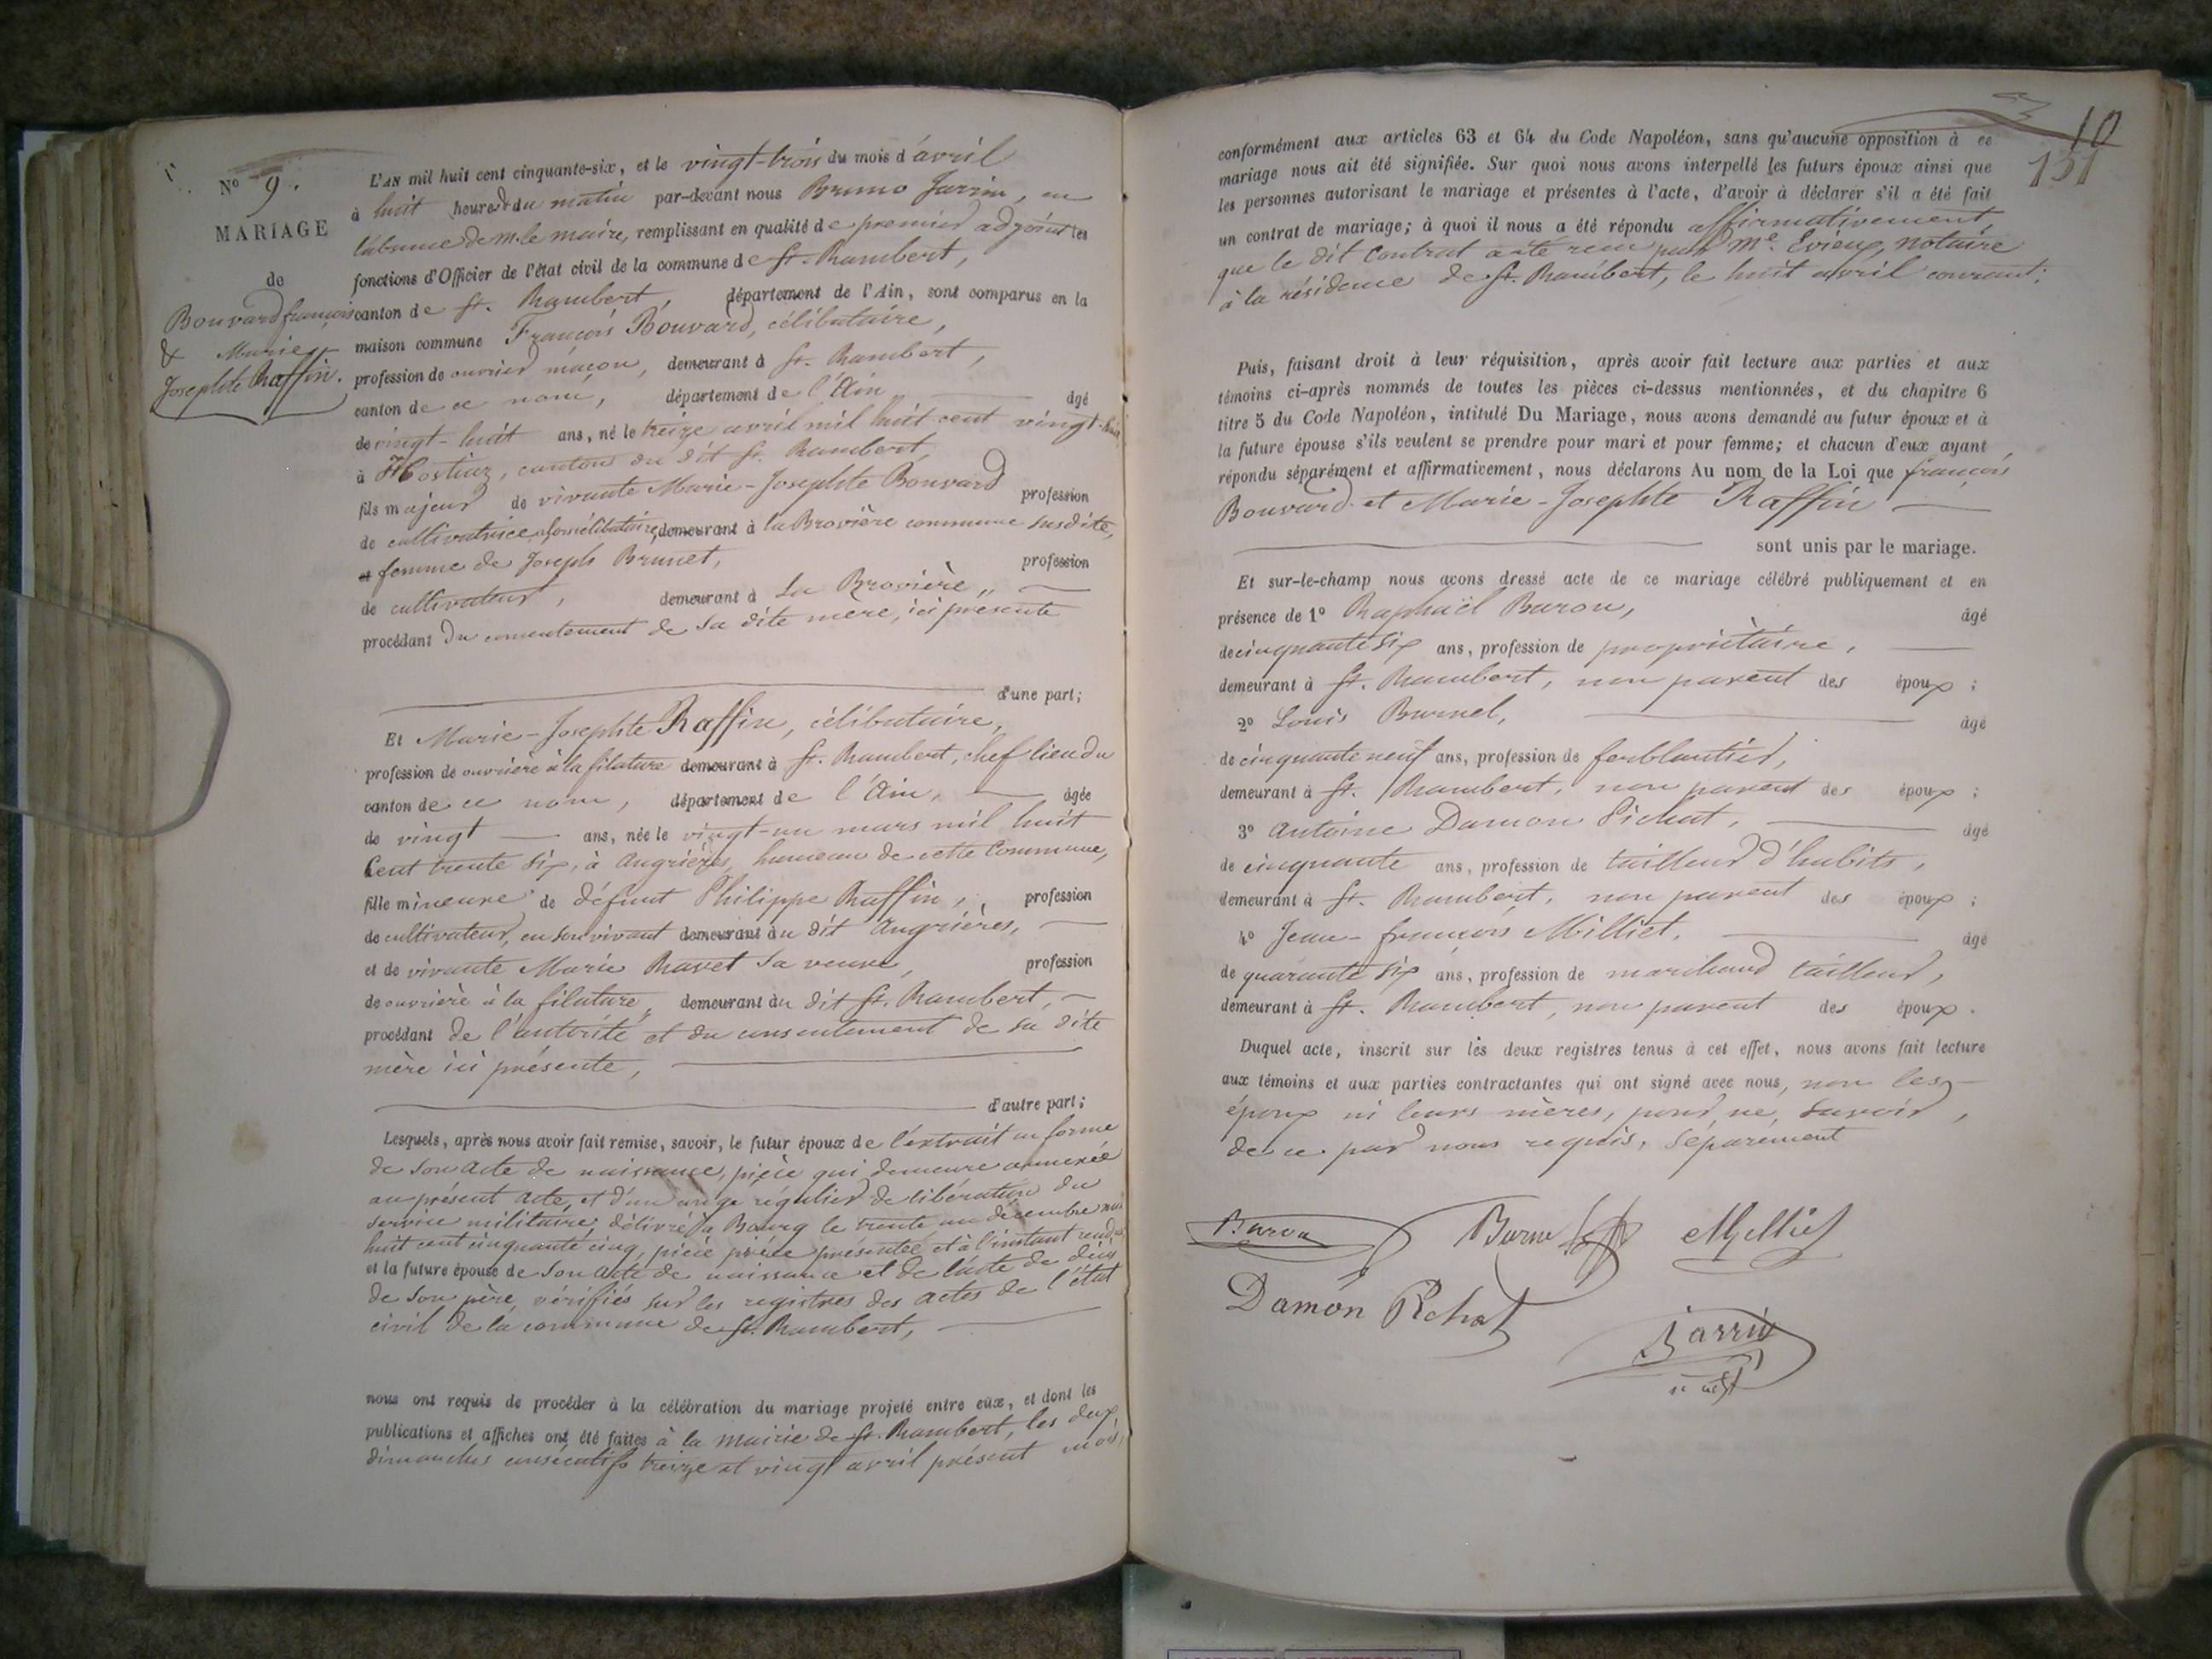 N° 9.
MARIAGE
de
Bouvard françois
& Marie-
Josephte Raffin.
L'AN mil huit cent cinquante-six, et le vingt-trois du mois d'avril
à huit heures du matin par-devant nous Bruno Jarrin, en
l'absence de M. le maire, remplissant en qualité de premier adjoint les
fonctions d'Officier de l'état civil de la commune de St. Rambert,
canton de St. Rambert, département de l'Ain, sont comparus en la
maison commune François Bouvard, célibataire,
profession de ouvrier maçon, demeurant à St. Rambert,
canton de ce nom, département de l'Ain âgé
de vingt-huit ans, né le treize avril mil huit cent vingt-huit
à Hostiaz, canton du dit St. Rambert,
fils majeur de vivante Marie-Josephte Bouvard profession
de cultivatrice, alors célibataire, demeurant à la Brovière commune susdite,
et femme de Joseph Brunet, profession
de cultivateur, demeurant à La Brovière,,
procédant du consentement de sa dite mère, ici présente
d'une part;
Et Marie-Josephte Raffin, célibataire,
profession de ouvrière à la filature demeurant à St. Rambert, chef lieu du
canton de ce nom, département de l'Ain, âgée
de vingt ans, née le vingt-un mars mil huit
Cent trente six, à Angrières, hameau de cette Commune,
fille mineure de défunt Philippe Raffin, profession
de cultivateur, en son vivant demeurant au dit Angrières,
et de vivante Marie Ravet sa veuve, profession
de ouvrière à la filature, demeurant au dit St. Rambert,
procédant de l'autorité et du consentement de sa dite
mère ici présente,
d'autre part;
Lesquels, après nous avoir fait remise, savoir, le futur époux de l'extrait en forme
de son acte de naissance, pièce qui demeure annexée
au présent acte, et d'un congé régulier de libération du
service militaire, délivré à Bourg le trente un décembre mil
huit cent cinquante cinq, pièce présentée et à l'instant rendue
et la future épouse de son acte de naissance et de l'acte de décès
de son père, vérifiés sur les registres des actes de l'état
civil de la commune de St. Rambert,
nous ont requis de procéder à la célébration du mariage projeté entre eux, et dont les
publications et affiches ont été faites à la mairie de St. Rambert, les deux
dimanches consécutifs treize et vingt avril présent mois,
10
151
conformément aux articles 63 et 64 du Code Napoléon, sans qu'aucune opposition à ce
mariage nous ait été signifiée. Sur quoi nous avons interpellé les futurs époux ainsi que
les personnes autorisant le mariage et présentes à l'acte, d'avoir à déclarer s'il a été fait
un contrat de mariage; à quoi il nous a été répondu affirmativement,
que le dit Contrat a été reçu par Me. Evieux, notaire
à la résidence de St. Rambert, le huit avril courant.
Puis, faisant droit à leur réquisition, après avoir fait lecture aux parties et aux
témoins ci-après nommés de toutes les pièces ci-dessus mentionnées, et du chapitre 6
titre 5 du Code Napoléon, intitulé Du Mariage, nous avons demandé au futur époux et à
la future épouse s'ils veulent se prendre pour mari et pour femme; et chacun d'eux ayant
répondu séparément et affirmativement, nous déclarons Au nom de la Loi que françois
Bouvard et Marie-Josephte Raffin
sont unis par le mariage.
Et sur-le-champ nous avons dressé acte de ce mariage célébré publiquement et en
présence de 1° Raphaël Baron, âgé
de cinquante six ans, profession de propriétaire,
demeurant à St. Rambert, non parent des époux;
2° Louis Burnel, âgé
de cinquante neuf ans, profession de ferblantier,
demeurant à St. Rambert, non parent des époux;
3° Antoine Damon Pichat, âgé
de cinquante ans, profession de tailleur d'habits,
demeurant à St. Rambert, non parent des époux;
4° Jean-françois Milliet, âgé
de quarante six ans, profession de marchand tailleur,
demeurant à St. Rambert, non parent des époux.
Duquel acte, inscrit sur les deux registres tenus à cet effet, nous avons fait lecture
aux témoins et aux parties contractantes qui ont signé avec nous, non les
époux ni leurs mères, pour ne savoir,
de ce par nous requis, séparément
Baron Milliet
Damon Pichat
Jarrin